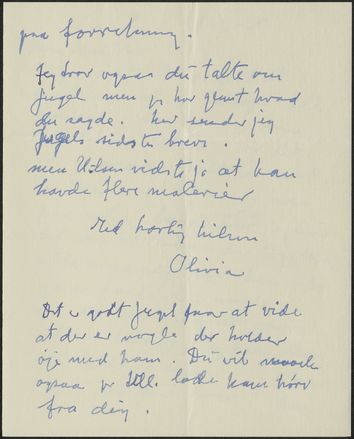 paa forretning.
Jeg tror ogsaa du talte om
Jugel men jeg har glemt hvad
du sagde. Her sender jeg
Jugels sidste brev.
men Uhen vidste jo at han
havde flere malerier
Med hartig hilsen
Olivia
Det er godt Jugel faar at vide
at der er nogle der holder
øje med ham. Du vil
ogsaa lade ham höre
fra dig.